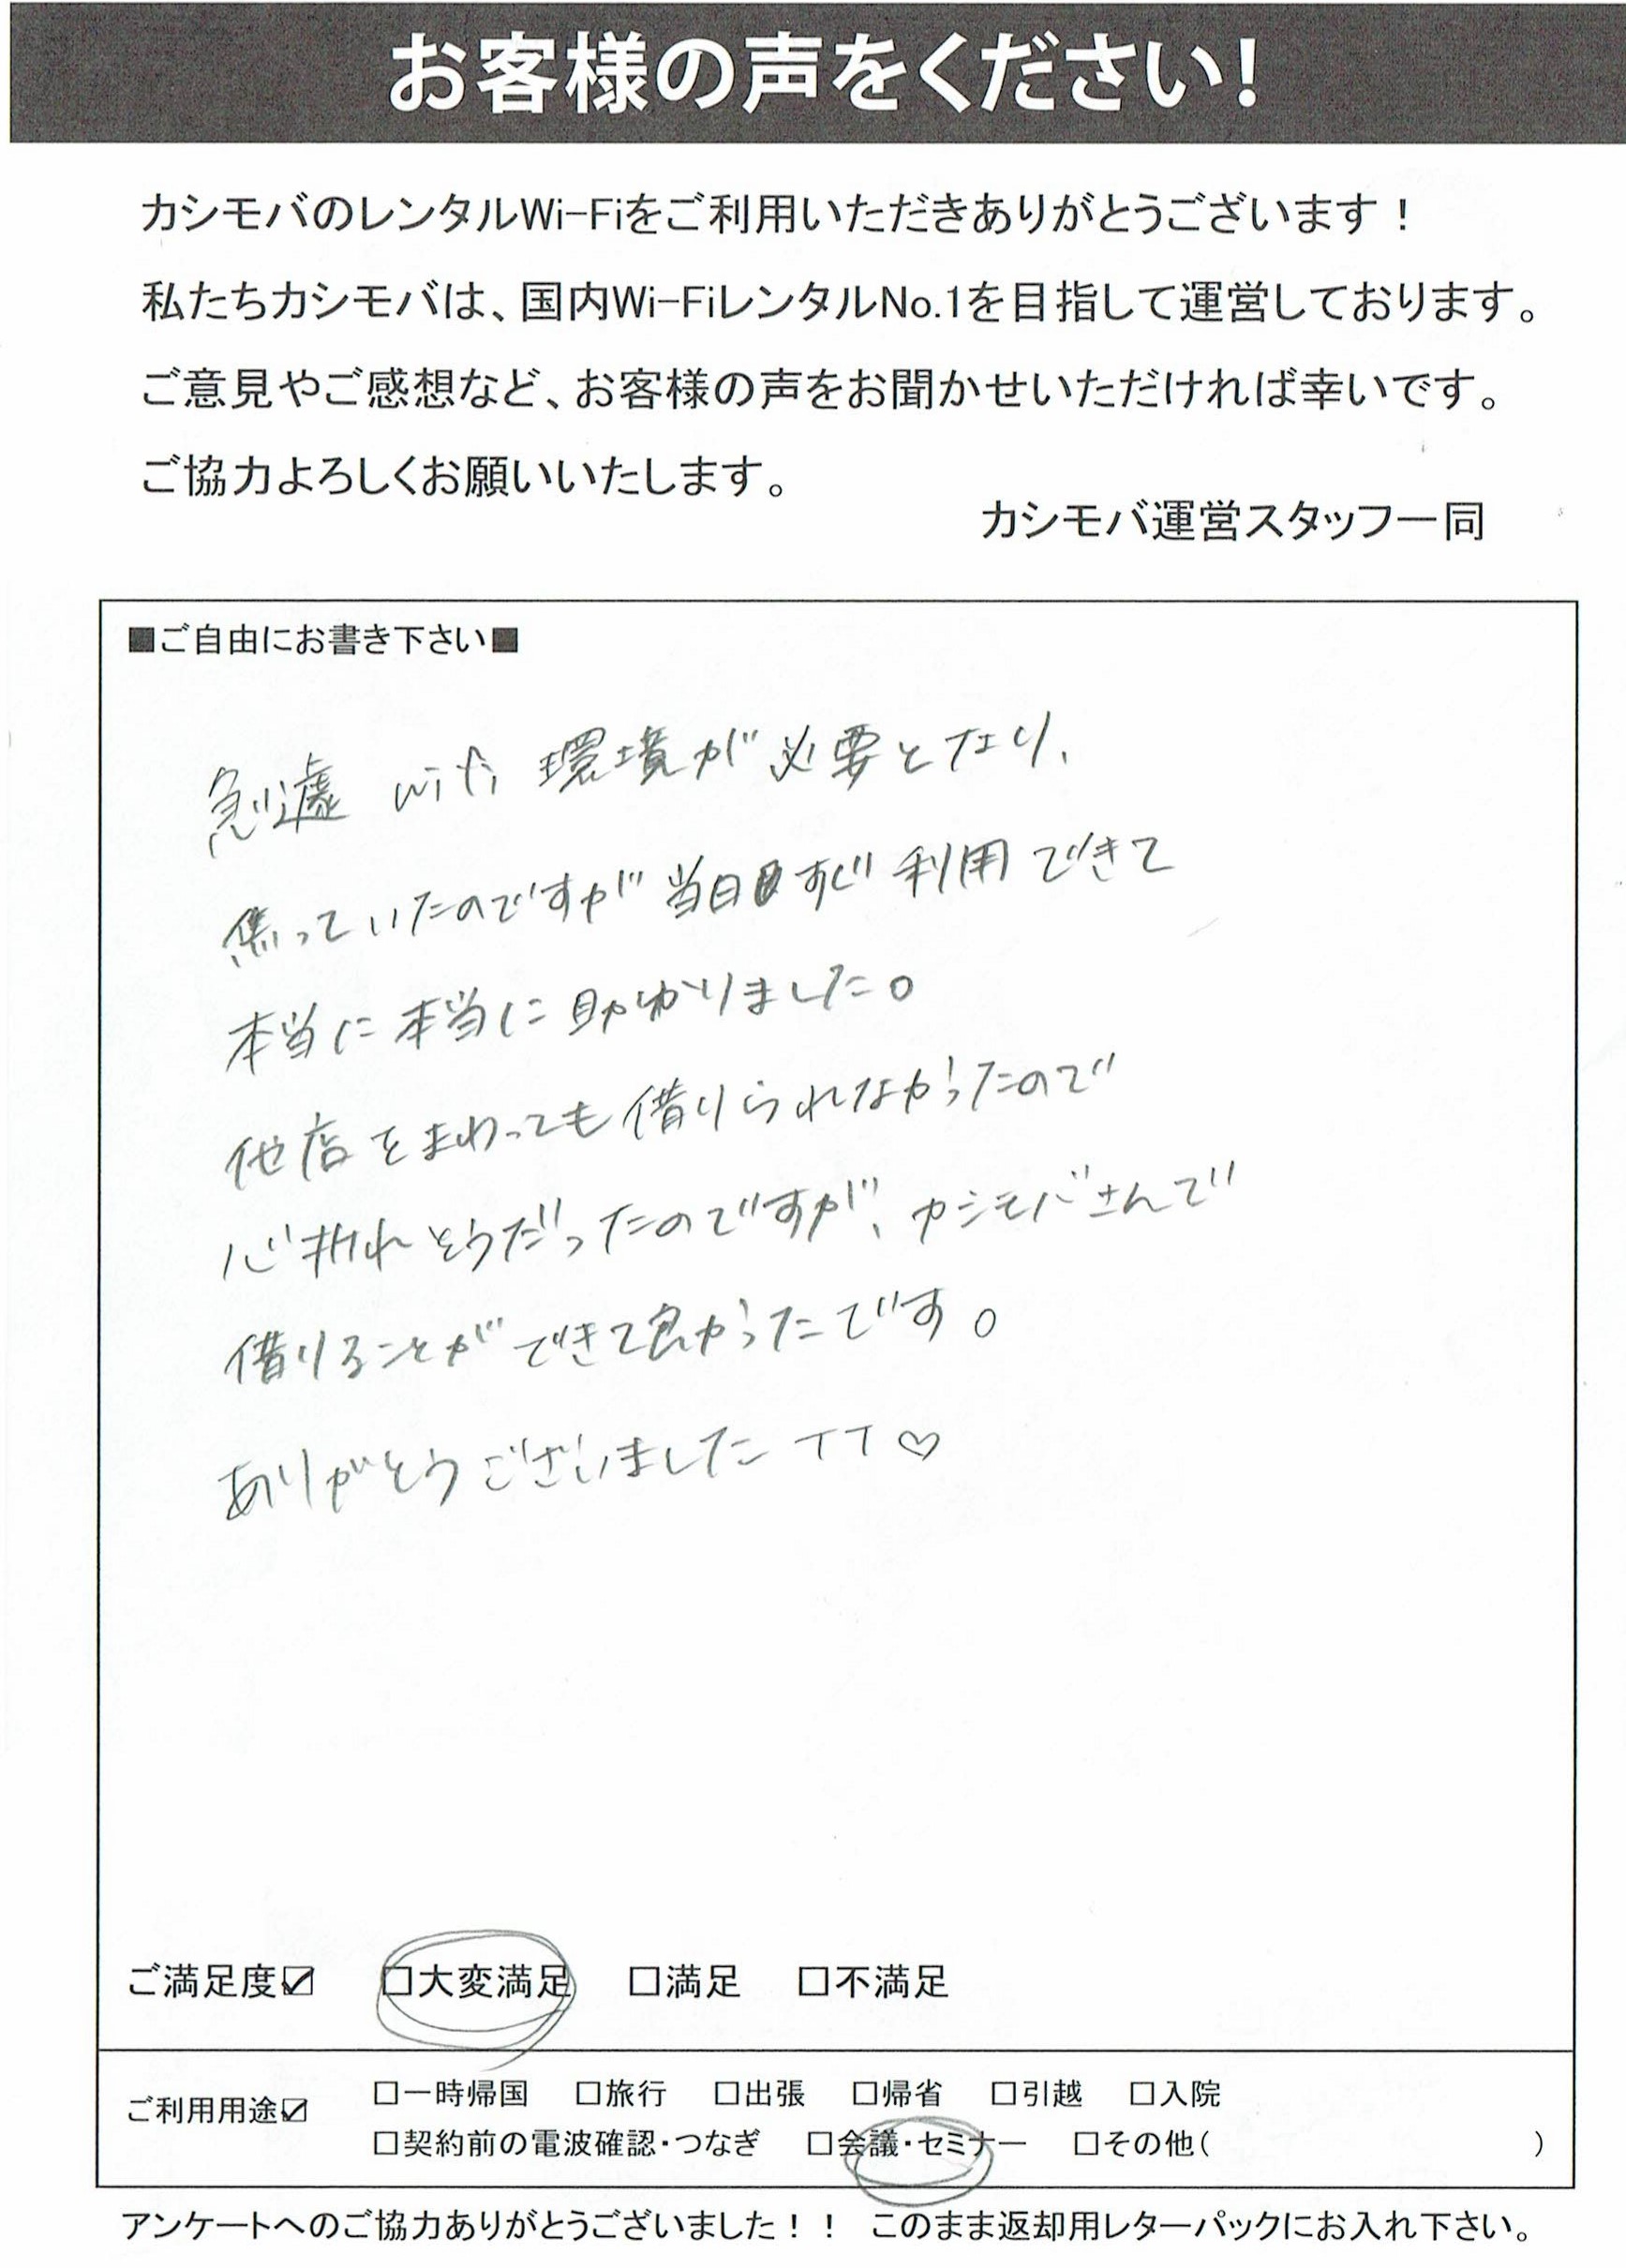 お客様の声をください!
カシモバのレンタルWi-Fiをご利用いただきありがとうございます！
私たちカシモバは、国内Wi-FiレンタルNo.1を目指して運営しております。
ご意見やご感想など、お客様の声をお聞かせいただければ幸いです。
ご協力よろしくお願いいたします。
カシモバ運営スタッフ一同
■ご自由にお書き下さい■
急遽 wifi 環境が必要となり、
焦っていたのですが当日すぐ利用できて
本当に本当に助かりました。
他店をまわっても借りられなかったので
心折れそうだったのですが、カシモバさんで
借りることができて良かったです。
ありがとうございました TT♡
ご満足度☑ □大変満足 □満足 □不満足
ご利用用途☑ □一時帰国 □旅行 □出張 □帰省 □引越 □入院
□契約前の電波確認・つなぎ □会議・セミナー □その他( )
アンケートへのご協力ありがとうございました！！ このまま返却用レターパックにお入れ下さい。